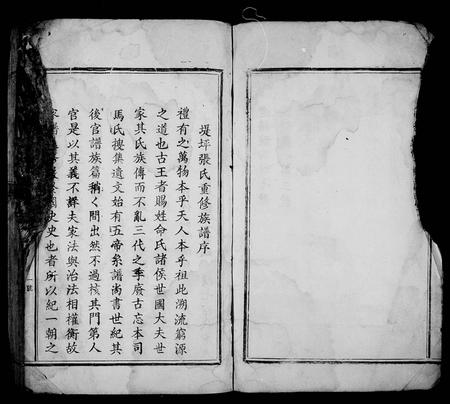 堤坪張氏重修族譜序
禮有之萬物本乎天人本乎祖此溯流窮源
之道也古王者賜姓命氏諸侯世國大夫世
家其氏族傳而不亂三代之季廢古忘本司
馬氏搜集遺文始有五帝系譜尚書世紀其
後官譜族篇稍く間出然不過核其門第人
官是以其義不詳夫家法與治法相權衡故
家譜與國史史也者所以紀一朝之